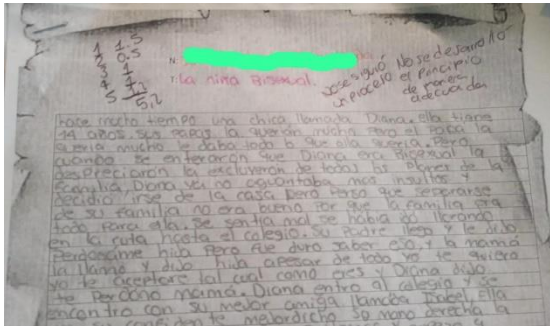 1 1.5
2 0.5
3 1
4 1
5
5,2
N:
T: La niña Bisexual.
no se siguió No se desarrolló
un proceso el principio
de manera
adecuada
hace mucho tiempo una chica llamada Diana. ella tiene
14 años. sus papas la querían mucho Pero el Papa la
queria mucho le daba todo lo que ella queria. Pero
cuando se enteraron que Diana era Bisexual la
despreciaron la excluyeron de todos los planes de la
familia, Diana ya no aguantaba mas insultos y
decidio irse de la casa pero tenia que separarse
de su familia no era bueno Por que la familia era
todo Para ella. se sentia mal se habia ido llorando
en la ruta hasta el colegio. su Padre llego y le dijo
Perdoname hija Pero fue duro saber eso, y la mamá
la llamo y dijo hija apesar de todo yo te quiero
yo te aceptare tal cual como eres y Diana dijo
te Perdono mamá. Diana entro al colegio y se
encontro con su mejor amiga llamada Isabel, ella
su confidente mejor dicho su mano derecha la